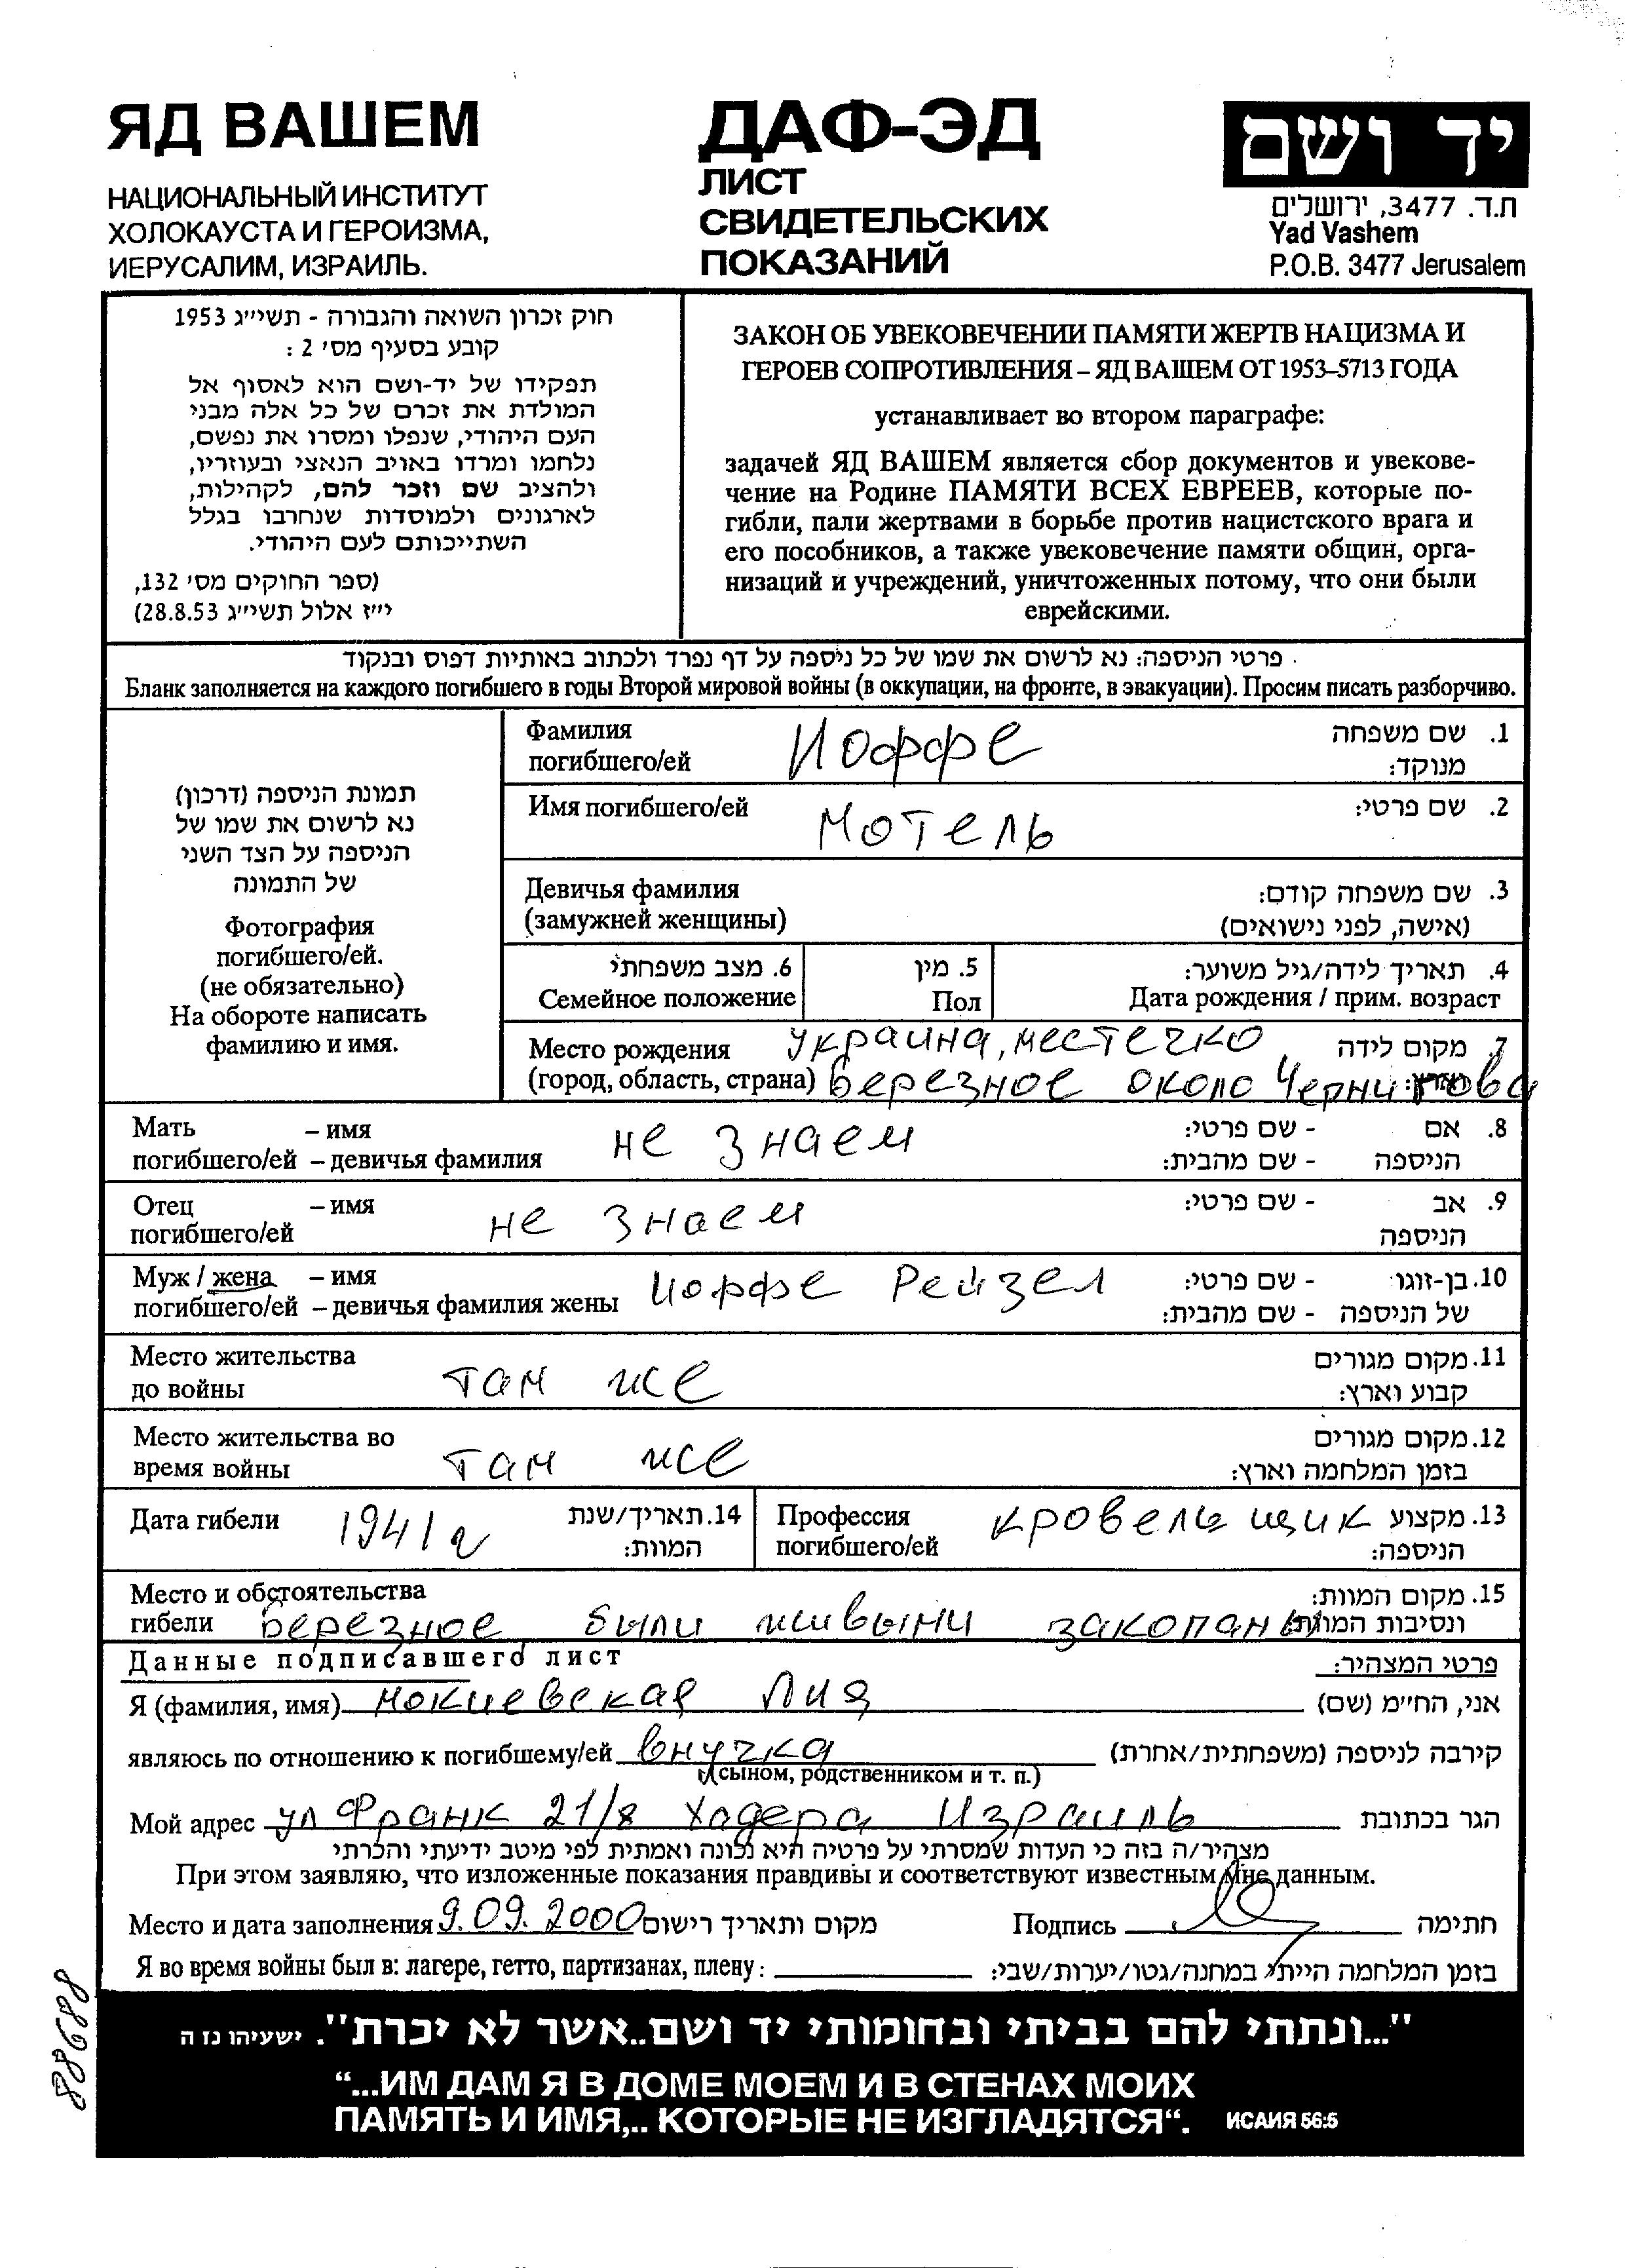 ЯД ВАШЕМ
НАЦИОНАЛЬНЫЙ ИНСТИТУТ
ХОЛОКАУСТА И ГЕРОИЗМА,
ИЕРУСАЛИМ, ИЗРАИЛЬ.
ДАФ-ЭД
ЛИСТ
СВИДЕТЕЛЬСКИХ
ПОКАЗАНИЙ
יד ושם
ת.ד. 3477, ירושלים
Yad Vashem
P.O.B. 3477 Jerusalem
חוק זכרון השואה והגבורה - תשי״ג 1953
קובע בסעיף מס׳ 2 :
תפקידו של יד-ושם הוא לאסוף אל
המולדת את זכרם של כל אלה מבני
העם היהודי, שנפלו ומסרו את נפשם,
נלחמו ומרדו באויב הנאצי ובעוזריו,
ולהציב שם וזכר להם, לקהילות,
לארגונים ולמוסדות שנחרבו בגלל
השתייכותם לעם היהודי.
(ספר החוקים מס׳ 132,
י״ז אלול תשי״ג 28.8.53)
ЗАКОН ОБ УВЕКОВЕЧЕНИИ ПАМЯТИ ЖЕРТВ НАЦИЗМА И
ГЕРОЕВ СОПРОТИВЛЕНИЯ – ЯД ВАШЕМ ОТ 1953–5713 ГОДА
устанавливает во втором параграфе:
задачей ЯД ВАШЕМ является сбор документов и увекове-
чение на Родине ПАМЯТИ ВСЕХ ЕВРЕЕВ, которые по-
гибли, пали жертвами в борьбе против нацистского врага и
его пособников, а также увековечение памяти общин, орга-
низаций и учреждений, уничтоженных потому, что они были
еврейскими.
פרטי הניספה: נא לרשום את שמו של כל ניספה על דף נפרד ולכתוב באותיות דפוס ובנקוד
Бланк заполняется на каждого погибшего в годы Второй мировой войны (в оккупации, на фронте, в эвакуации). Просим писать разборчиво.
תמונת הניספה (דרכון)
נא לרשום את שמו של
הניספה על הצד השני
של התמונה
Фотография
погибшего/ей.
(не обязательно)
На обороте написать
фамилию и имя.
Фамилия Иоффе 1. שם משפחה
погибшего/ей מנוקד:
Имя погибшего/ей Мотель 2. שם פרטי:
Девичья фамилия 3. שם משפחה קודם:
(замужней женщины) (אישה, לפני נישואים)
6. מצב משפחתי 5. מין 4. תאריך לידה/גיל משוער:
Семейное положение Пол Дата рождения / прим. возраст
Место рождения Украина, местечко 7. מקום לידה
(город, область, страна) Березное около Чернигова
Мать – имя не знаем 8. אם - שם פרטי:
погибшего/ей – девичья фамилия הניספה - שם מהבית:
Отец – имя не знаем 9. אב - שם פרטי:
погибшего/ей הניספה
Муж / жена – имя Иоффе Рейзел 10. בן-זוגו - שם פרטי:
погибшего/ей – девичья фамилия жены של הניספה - שם מהבית:
Место жительства там же 11. מקום מגורים
до войны קבוע וארץ:
Место жительства во там же 12. מקום מגורים
время войны בזמן המלחמה וארץ:
Дата гибели 1941 г 14. תאריך/שנת המוות:
Профессия кровельщик 13. מקצוע
погибшего/ей הניספה:
Место и обстоятельства 15. מקום המוות:
гибели Березное были живыми закопаны ונסיבות המוות
Данные подписавшего лист פרטי המצהיר:
Я (фамилия, имя) Мокиевская Лия אני, הח״מ (שם)
являюсь по отношению к погибшему/ей внучка קירבה לניספה (משפחתית/אחרת)
(сыном, родственником и т. п.)
Мой адрес ул Франк 21/8 Хадера Израиль הגר בכתובת
מצהיר/ה בזה כי העדות שמסרתי על פרטיה היא נכונה ואמתית לפי מיטב ידיעתי והכרתי
При этом заявляю, что изложенные показания правдивы и соответствуют известным мне данным.
Место и дата заполнения 9.09.2000 מקום ותאריך רישום Подпись חתימה
Я во время войны был в: лагере, гетто, партизанах, плену: בזמן המלחמה הייתי במחנה/גטו/יערות/שבי:
"...ונתתי להם בביתי ובחומותי יד ושם..אשר לא יכרת". ישעיהו נז ה
“...ИМ ДАМ Я В ДОМЕ МОЕМ И В СТЕНАХ МОИХ
ПАМЯТЬ И ИМЯ,.. КОТОРЫЕ НЕ ИЗГЛАДЯТСЯ“. ИСАИЯ 56:5